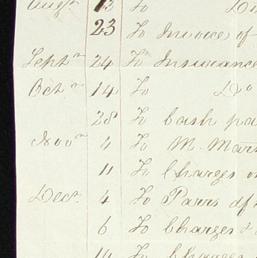 Augt 13 To Do
23 To Invoice of
Septr 24 To Insurance
Octr 14 To Do
28 To Cash pa
Novr 4 To M. Mar
11 To Charges o
Decr 4 To Pairs of
6 To Charges
14 To Charges